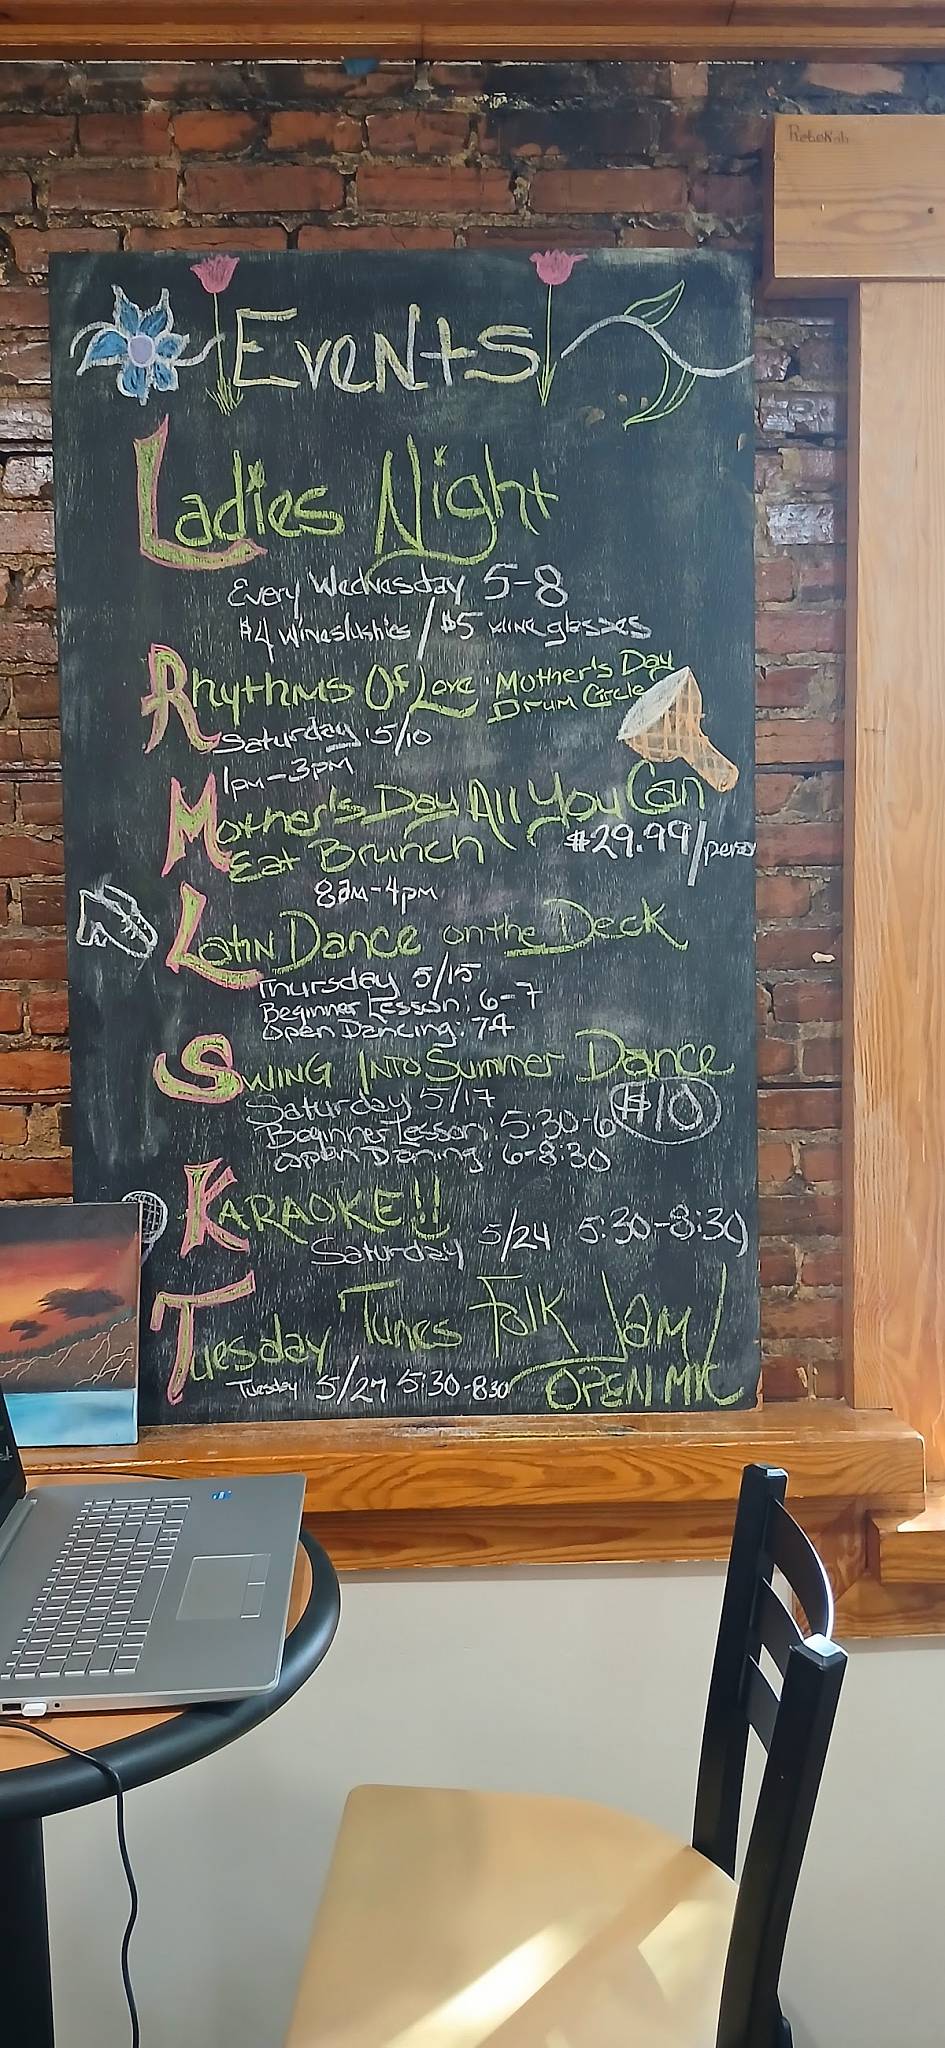 Rebekah
Events
Ladies Night
Every Wednesday 5-8
$4 wineslushies / $5 wine glasses
Rhythms Of Love: Mother's Day
Drum Circle
Saturday 5/10
1pm-3pm
Mother's Day All You Can
Eat Brunch $29.99/person
8am-4pm
Latin Dance on the Deck
Thursday 5/15
Beginner Lesson: 6-7
Open Dancing: 74
Swing Into Summer Dance
Saturday 5/17
$10
Beginner Lesson: 5:30-6
Open Dancing: 6-8:30
Karaoke!!
Saturday 5/24 5:30-8:30
Tuesday Tunes Folk Jam/
Tuesday 5/27 5:30-8:30 OPEN MIC